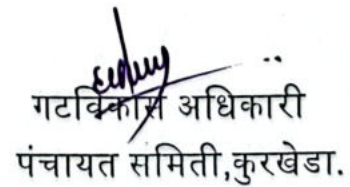 गटविकास अधिकारी
पंचायत समिती,कुरखेडा.